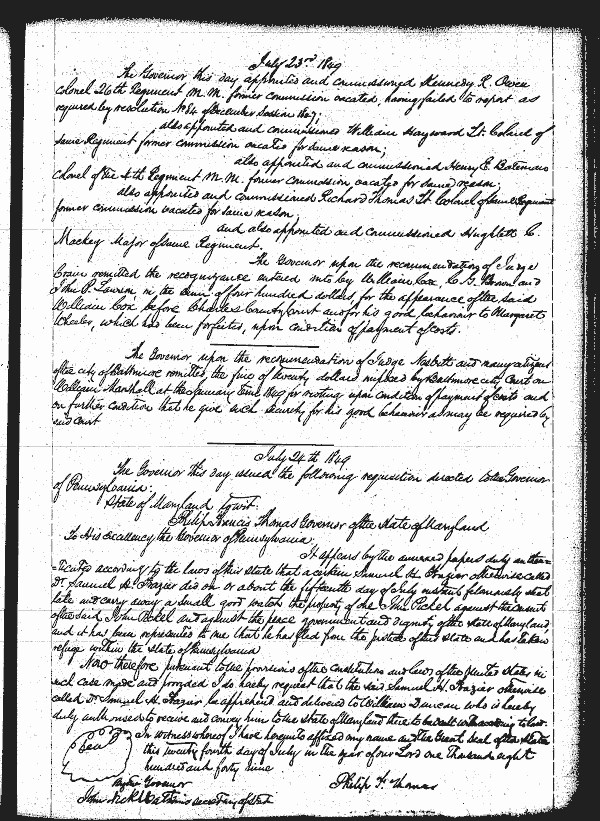 July 23rd 1849
The Governor this day appointed and commissioned Kennedy R. Owen
colonel 26th Regiment M. M. former commission vacated, having failed to report as
required by resolution No 84 of December Session 1847;
also appointed and commissioned William Hayward Lt. Colonel of
same Regiment former commission vacated for same reason;
also appointed and commissioned Henry E. Bateman
Colonel of the 4th Regiment M. M. former commission vacated for same reason;
also appointed and commissioned Richard Thomas Lt. Colonel of same Regiment
former commission vacated for same reason,
and also appointed and commissioned Hughlett C.
Mackey Major of same Regiment.
The Governor upon the recommendation of Judge
Crain remitted the recognizance entered into by William Cox, C. G. Brown and
John P. in the sum of four hundred dollars, for the appearance of the said
William Cox before Charles County Court and for his good behavour to Margaret
Wheeler, which has been forfeited, upon condition of payment of costs.
The Governor upon the recommendation of Judge Nesbett and many citizens
of the city of Baltimore remitted, the fine of twenty dollars imposed by Baltimore city Court on
William Marshall at the January Term 1849 for rioting upon condition of payment of costs and
on further condition that he give such security for his good behaviour as may be required by
said Court
July 24th 1849
The Governor this day issued the following requisition directed to the Governor
of Pennsylvania:
State of Maryland to wit.
Philip Francis Thomas Governor of the State of Maryland
To His excellency the Governor of Pennsylvania:
It appears by the annexed papers duly authen=
=ticated according to the laws of this state that a certain Samuel H. Frazier otherwise called
Dr. Samuel H. Frazier did on or about the fifteenth day of July instant feloniously steal
take and carry away a small gold watch the property of one John Pickel against the consent
of the said John Pickel and against the peace government and dignity of the state of Maryland
and it has been represented to me that he has fled from the justice of this State and has taken
refuge within the State of Pennsylvania
Now therefore pursuant to the provisions of the constitution and laws of the United States in
such case made and provided I do hereby request that the said Samuel H. Frazier otherwise
called Dr. Samuel H. Frazier be apprehend and delivered to William Duncan who is hereby
duly authorised to receive and convey him to the State of Maryland there to be dealt with according to law.
In witness whereof I have hereunto affixed my name and the Great Seal of the State
Seal
this twenty fourth day of July in the year of our Lord one Thousand eight
hundred and forty nine
By the Governor
Philip F. Thomas
John Nick Watkins Secretary of State